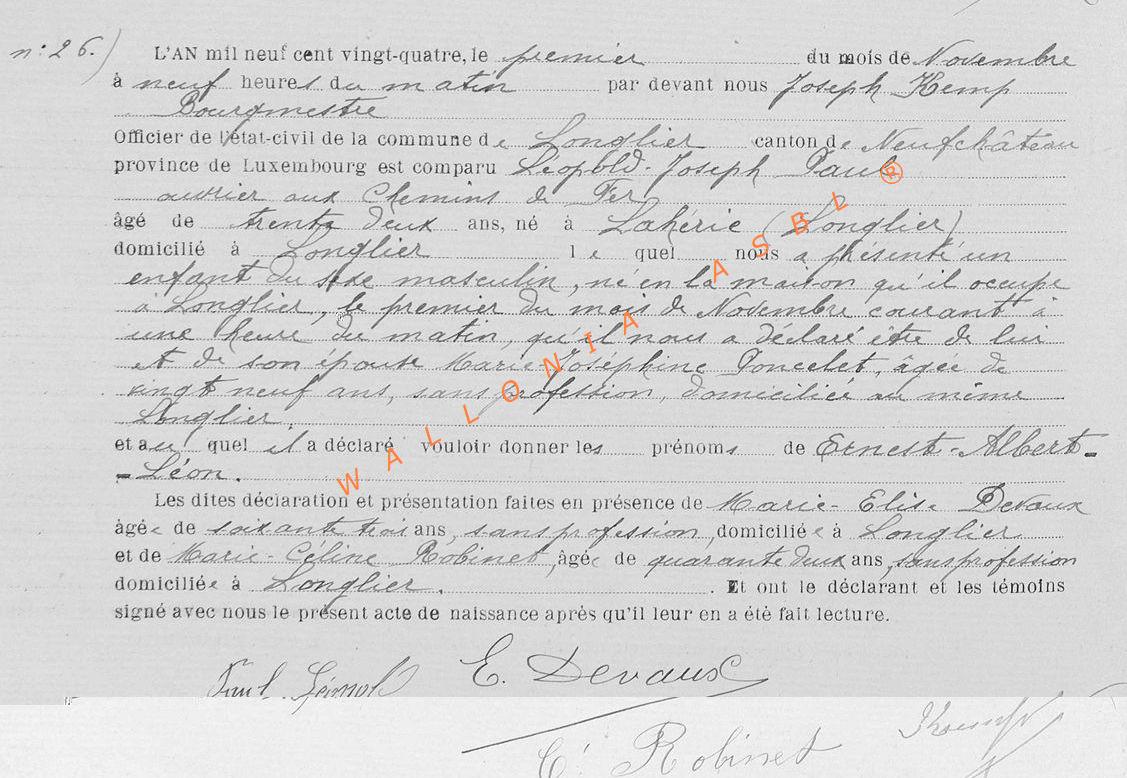 n: 26.)
L'AN mil neuf cent vingt-quatre, le premier du mois de Novembre
à neuf heures du matin par devant nous Joseph Kemp
Bourgmestre
Officier de l'état-civil de la commune de Longlier canton de Neufchâteau
province de Luxembourg est comparu Léopold-Joseph Paul
ouvrier aux Chemins de Fer
âgé de trente deux ans, né à Lahérie (Longlier)
domicilié à Longlier lequel nous a présenté un
enfant du sexe masculin, né en la maison qu'il occupe
à Longlier, le premier du mois de Novembre courant à
une heure du matin, qu'il nous a déclaré être de lui
et de son épouse Marie-Joséphine Poncelet, âgée de
vingt neuf ans, sans profession, domiciliée au même
Longlier.
et au quel il a déclaré vouloir donner les prénoms de Ernest-Albert-
-Léon.
Les dites déclaration et présentation faites en présence de Marie-Elise Devaux
âgée de soixante trois ans, sans profession, domiciliée à Longlier
et de Marie-Céline Robinet, âgée de quarante deux ans, sans profession
domiciliée à Longlier. Et ont le déclarant et les témoins
signé avec nous le présent acte de naissance après qu'il leur en a été fait lecture.
Paul E. Devaux
C. Robinet
WALLONIA ASBL ®